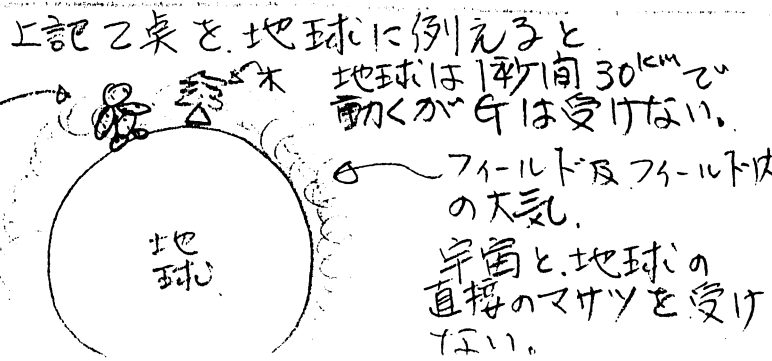 上記乙点を、地球に例えると
地球は1秒間30kmで
動くがGは受けない。
木
フィールド及フィールド内
の大気、
宇宙と、地球の
直接のマサツを受け
ない。
地
球